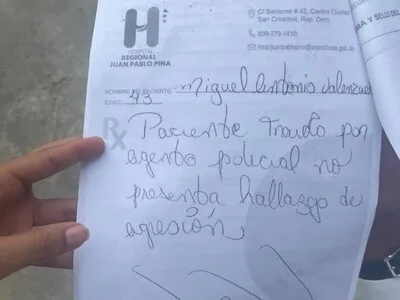 C/ Santomé # 42, Centro Ciudad
San Cristóbal, Rep. Dom.
809-279-1410
HOSPITAL
REGIONAL
JUAN PABLO PINA
Y SELLO DEL
NOMBRE DEL PACIENTE: Miguel Antonio Valenzuel
EDAD: 43
Rx
Paciente Traido por
agente policial no
presenta hallazgo de
agresión